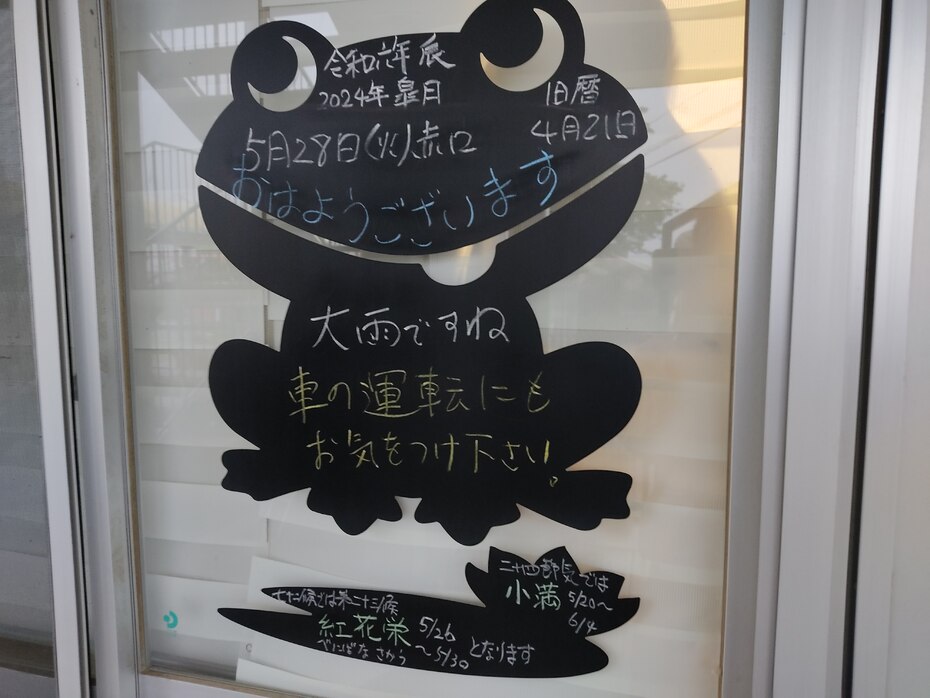 令和六年 辰
2024年 皐月
旧暦
4月21日
5月28日(火)赤口
おはようございます
大雨ですね
車の運転にも
お気をつけ下さい。
二十四節気では
小満 5/20〜
6/4
七十二候では第二十三候
紅花栄 5/26
べにばなさかう 〜5/30 となります